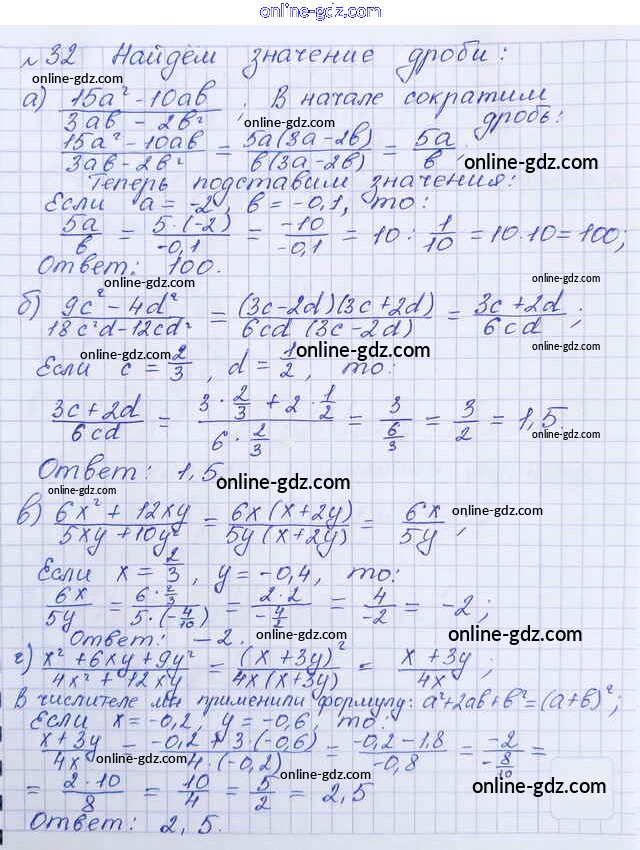 online-gdz.com
№ 32 Найдём значение дроби:
online-gdz.com
а) (15a² - 10ab)/(3ab - 2b²). В начале сократим
online-gdz.com дробь:
(15a² - 10ab)/(3ab - 2b²) = 5a(3a - 2b)/b(3a - 2b) = 5a/b.
online-gdz.com
Теперь подставим значения:
Если a = -2, b = -0,1, то:
online-gdz.com online-gdz.com
5a/b = 5·(-2)/-0,1 = -10/-0,1 = 10 : 1/10 = 10·10 = 100;
Ответ: 100.
online-gdz.com online-gdz.com
б) (9c² - 4d²)/(18c²d - 12cd²) = (3c - 2d)(3c + 2d)/6cd (3c - 2d) = (3c + 2d)/6cd;
online-gdz.com
Если c = 2/3, d = 1/2, то:
online-gdz.com online-gdz.com
(3c + 2d)/6cd = (3·2/3 + 2·1/2)/(6·2/3) = 3/(6/3) = 3/2 = 1,5.
online-gdz.com
Ответ: 1,5
online-gdz.com
online-gdz.com
в) (6x² + 12xy)/(5xy + 10y²) = 6x(x + 2y)/5y(x + 2y) = 6x/5y;
online-gdz.com
online-gdz.com
Если x = 2/3, y = -0,4, то:
6x/5y = (6·2/3)/(5·(-4/10)) = 2·2/(-4/2) = 4/-2 = -2;
Ответ: -2.
online-gdz.com online-gdz.com
г) (x² + 6xy + 9y²)/(4x² + 12xy) = (x + 3y)²/4x(x + 3y) = (x + 3y)/4x;
В числителе мы применили формулу: a² + 2ab + b² = (a + b)²;
Если x = -0,2, y = -0,6, то:
online-gdz.com
(x + 3y)/4x = (-0,2 + 3·(-0,6))/4·(-0,2) = (-0,2 - 1,8)/-0,8 = -2/(-8/10) =
online-gdz.com online-gdz.com
= 2·10/8 = 10/4 = 5/2 = 2,5
online-gdz.com
online-gdz.com
Ответ: 2,5.